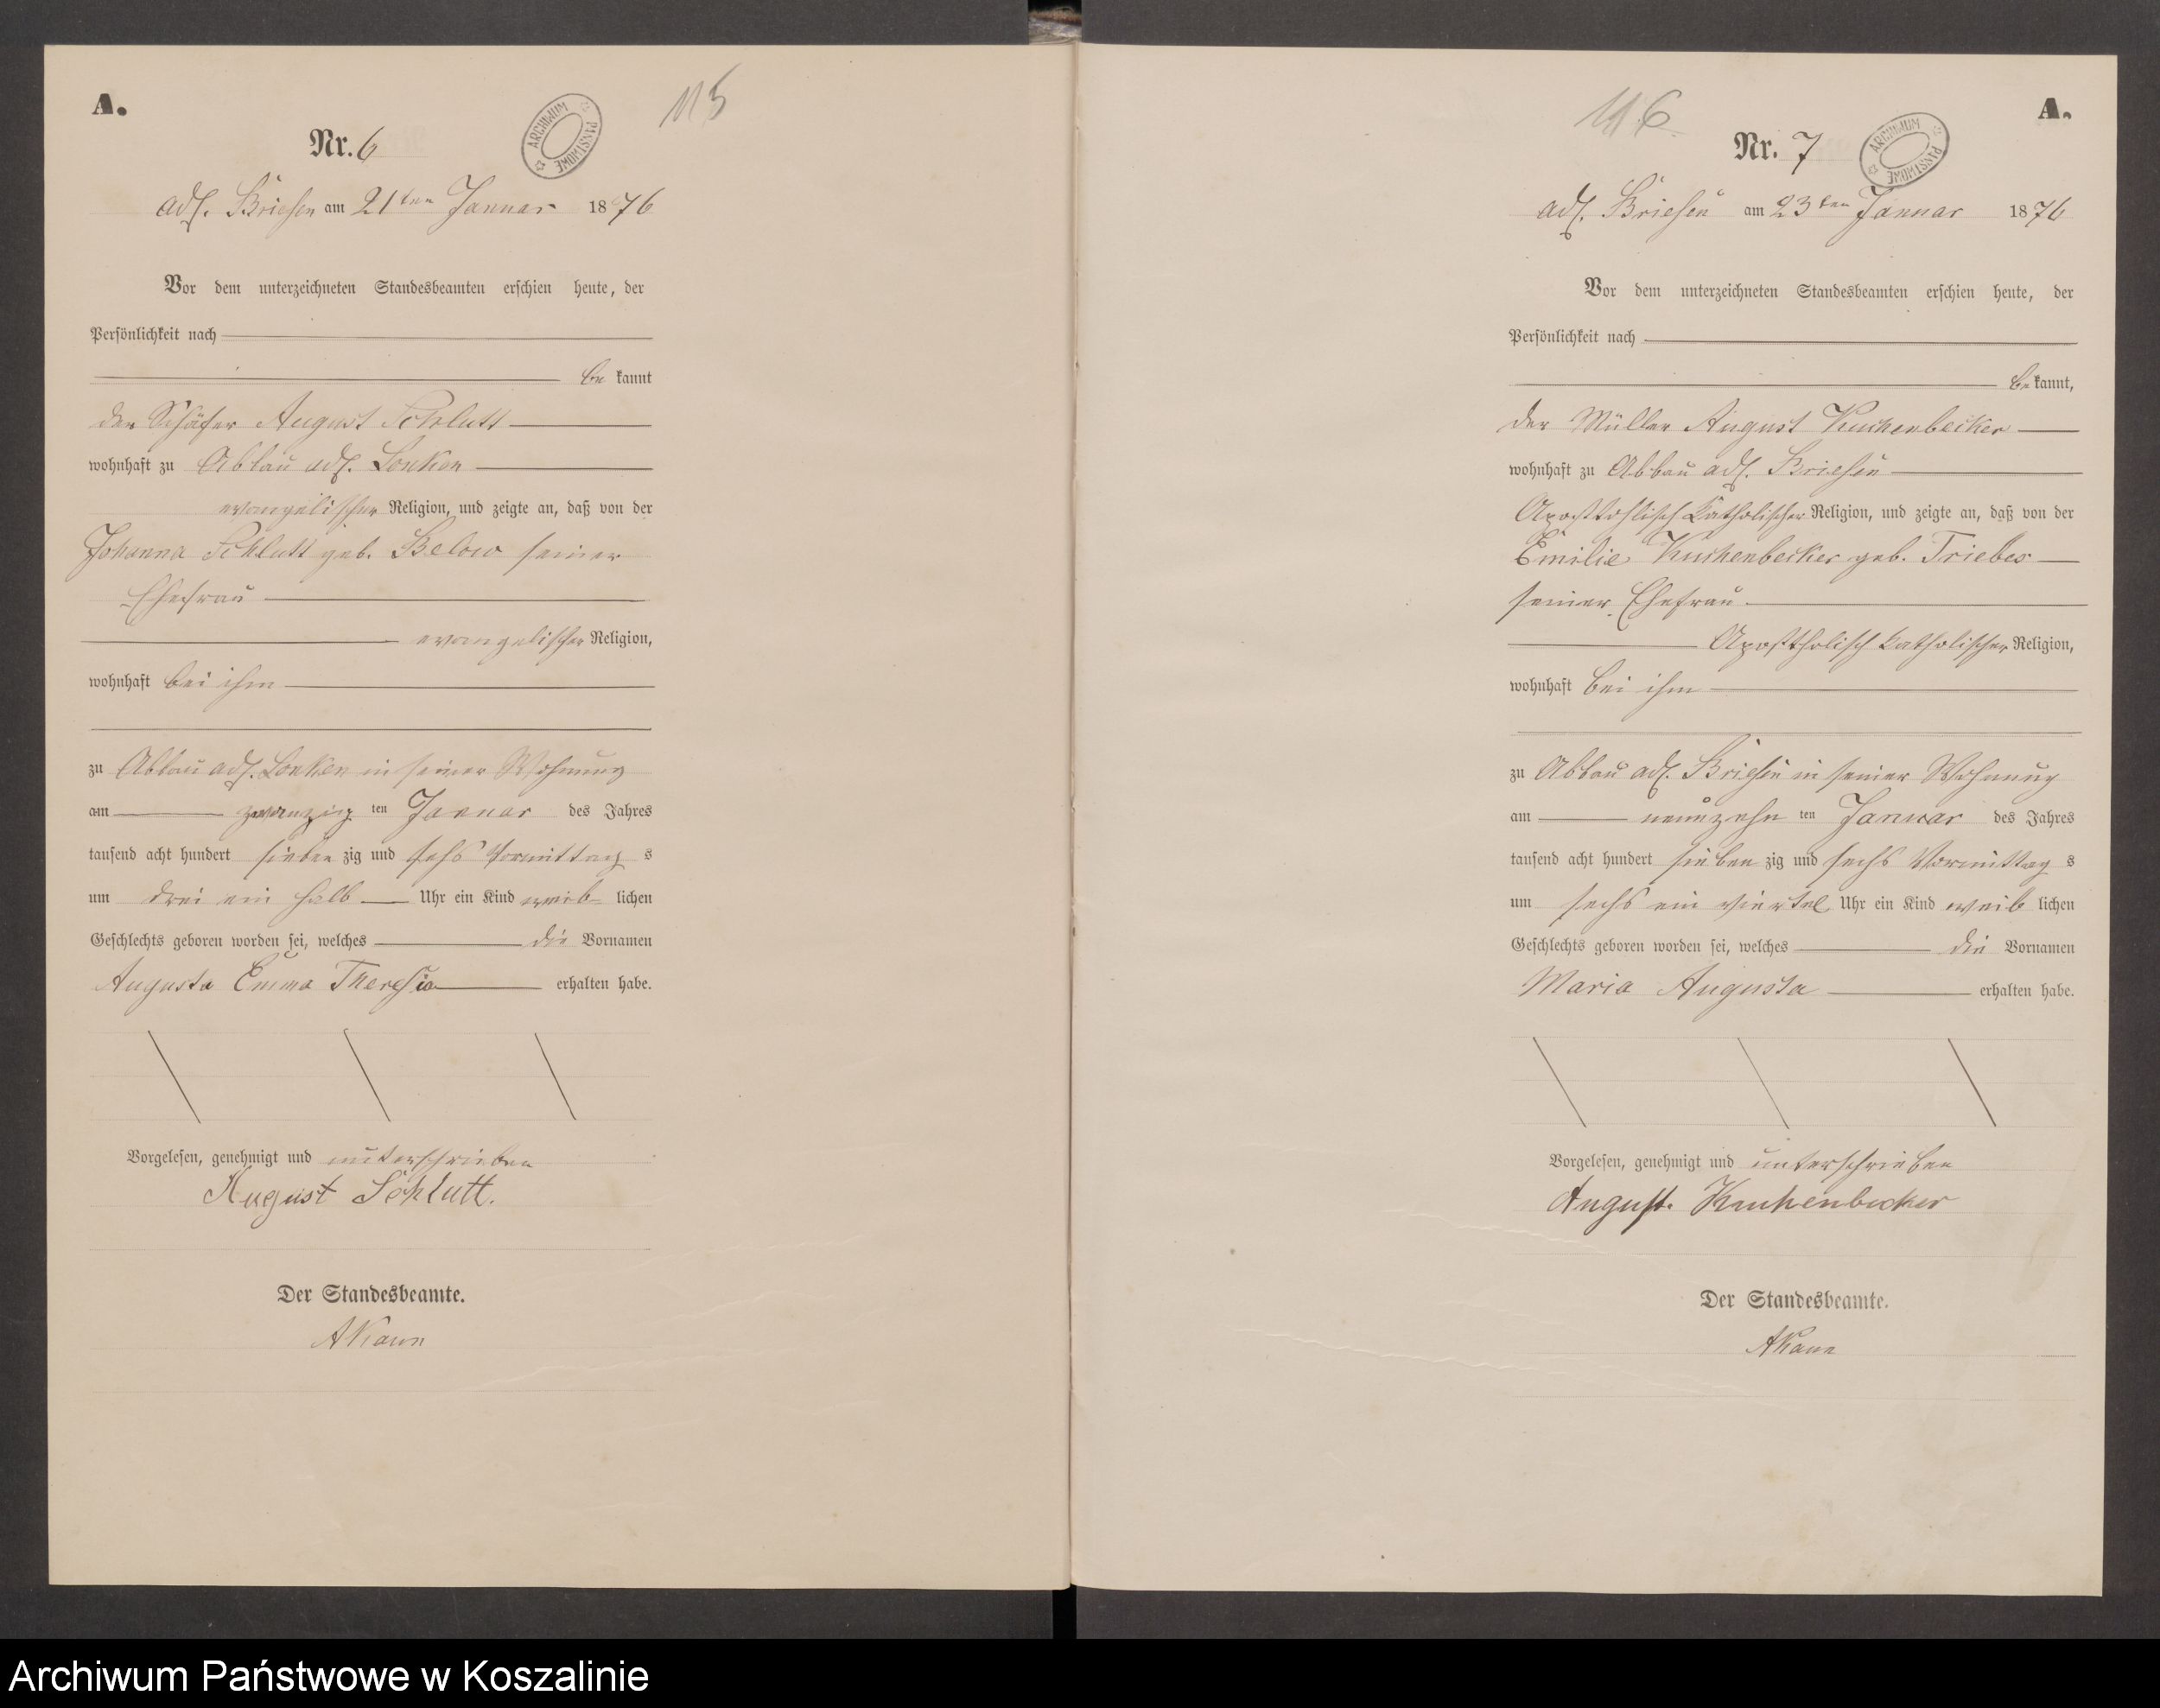 A.
Nr. 6
ARCHIWUM PAŃSTWOWE
115
adl. Briesen am 21ten Januar 1876
Vor dem unterzeichneten Standesbeamten erschien heute, der
Persönlichkeit nach
be kannt
der Schäfer August Schlutt
wohnhaft zu Abbau adl. Lonken
evangelischer Religion, und zeigte an, daß von der
Johanna Schlutt geb. Below seiner
Ehefrau
evangelischer Religion,
wohnhaft bei ihm
zu Abbau adl. Lonken in seiner Wohnung
am zwanzig ten Januar des Jahres
tausend acht hundert sieben zig und sechs Vormittag s
um drei ein halb Uhr ein Kind weib lichen
Geschlechts geboren worden sei, welches die Vornamen
Augusta Emma Theresia erhalten habe.
Vorgelesen, genehmigt und unterschrieben
August Schlutt.
Der Standesbeamte.
116
A.
Nr. 7
ARCHIWUM PAŃSTWOWE
adl. Briesen am 23ten Januar 1876
Vor dem unterzeichneten Standesbeamten erschien heute, der
Persönlichkeit nach
be kannt,
der Müller August Kuchenbecker
wohnhaft zu Abbau adl. Briesen
Apostholisch Katholischer Religion, und zeigte an, daß von der
Emilie Kuchenbecker geb. Triebes
seiner Ehefrau
Apostholisch katholischer Religion,
wohnhaft bei ihm
zu Abbau adl. Briesen in seiner Wohnung
am neunzehn ten Januar des Jahres
tausend acht hundert sieben zig und sechs Vormittag s
um sechs ein viertel Uhr ein Kind weib lichen
Geschlechts geboren worden sei, welches die Vornamen
Maria Augusta erhalten habe.
Vorgelesen, genehmigt und unterschrieben
August. Kuchenbecker
Der Standesbeamte.
Archiwum Państwowe w Koszalinie